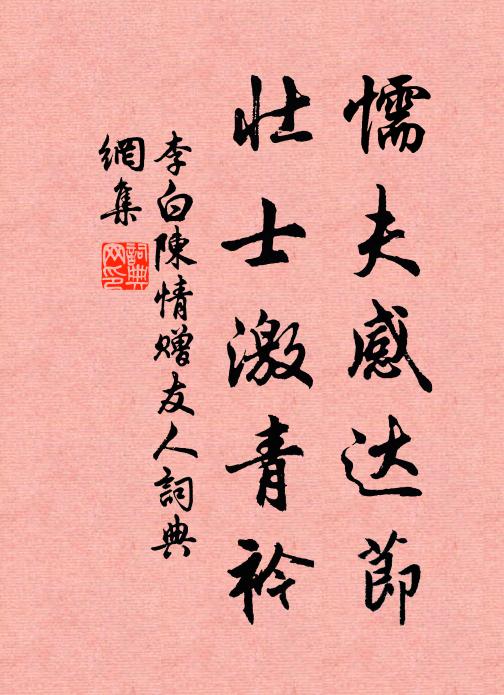 懦夫感达節
壮士激青衿
李白陳情贈友人詞典
網集
詞典网印